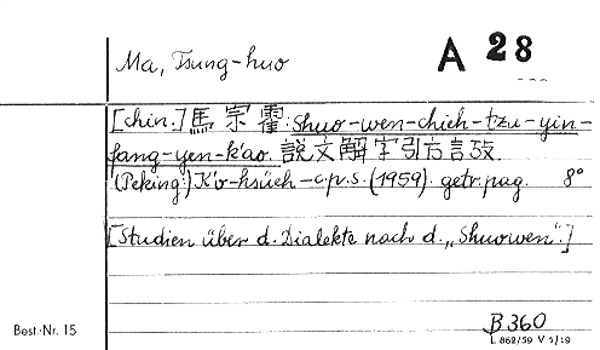 Ma, Tsung-huo
A 28
[chin.] 馬宗霍: Shuo-wen-chieh-tzu-yin-
fang-yen-k'ao. 説文解字引方言攷.
(Peking:) K'o-hsüeh-c.p.s. (1959). getr. pag. 8°
[Studien über d. Dialekte nach d. „Shuowen".]
B 360
Best.-Nr. 15
L 862/59 V 5/19